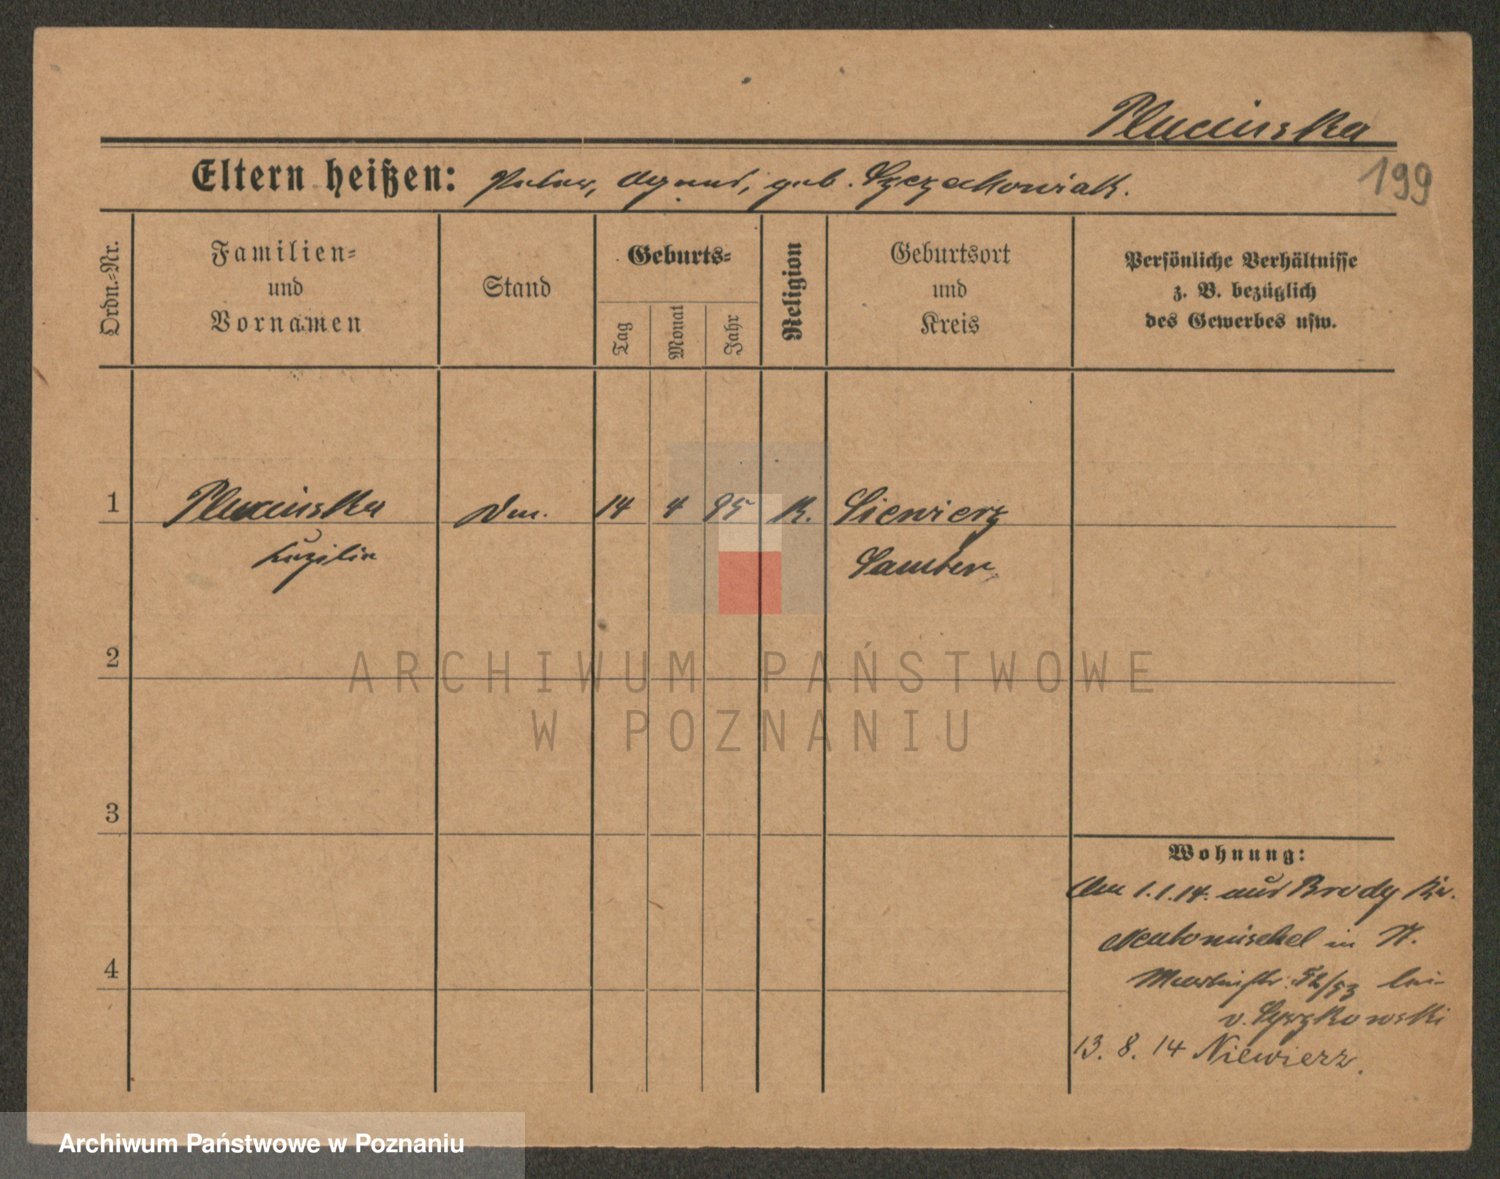 Plucinska
199
Eltern heißen: Peter, Agnes, geb. Szczechowiak.
Ordn.=Nr.
Familien=
und
Vornamen
Stand
Geburts=
Tag
Monat
Jahr
Religion
Geburtsort
und
Kreis
Persönliche Verhältnisse
z. B. bezüglich
des Gewerbes usw.
1
Plucinska
14 4 95 K. Siewierz
Samter
2
ARCHIWUM PAŃSTWOWE
W POZNANIU
3
4
Wohnung:
Am 1.1.14. aus Brody Kr.
Neutomischel in
52/53 bei
v.
13. 8. 14 Niewierz.
Archiwum Państwowe w Poznaniu